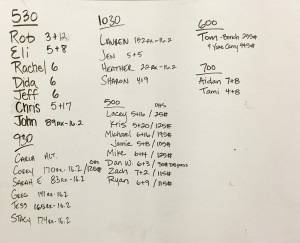 530
Rob 3+12
Eli 5+8
Rachel 6
Dida 6
Jeff 6
Chris 5+17
John 89RX-16.2
930
Carla Alt.
Corey 170RX-16.2
Sarah E 83RX-16.2
Greg 141RX-16.2
Tess 165RX-16.2
Stacy 174RX-16.2
1030
Lauren 152RX-16.2
Jen 5+5
Heather 22RX-16.2
Sharon 4+9
500
Lacey 5+16 / 25#
Kris 5+20 / 125#
Michael 6+16 / 195#
Jamie 5+8 / 105#
Mike 6+4 / 125#
Dan W. 6+3 /
Zach 7+2 / 115#
Ryan 6+9 / 115#
600
Tom - Bench 255#
700
Aidan 7+8
Tami 4+8